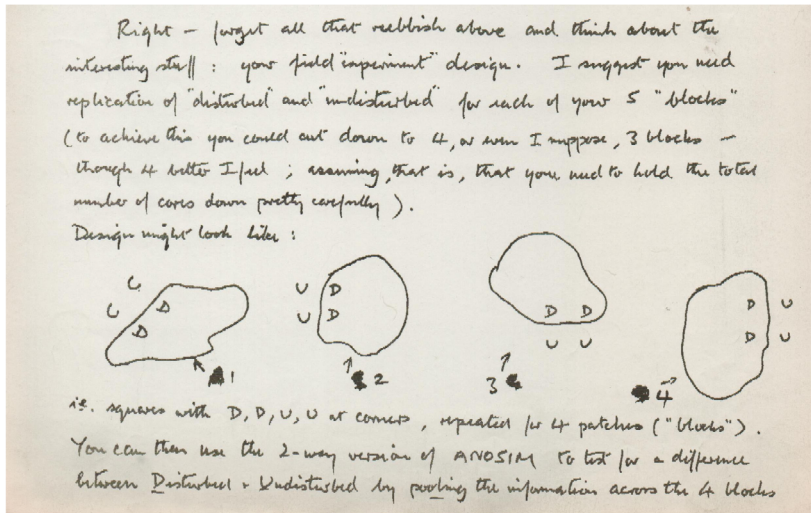 Right – forget all that rubbish above and think about the
interesting stuff : your field "experiment" design. I suggest you need
replication of "disturbed" and "undisturbed" for each of your 5 "blocks"
(to achieve this you could cut down to 4, or even I suppose, 3 blocks –
though 4 better I feel ; assuming, that is, that you need to hold the total
number of cores down pretty carefully ).
Design might look like :
U U D D
U D
U D
D D
U U
D U
D U
1
2
3
4
i.e. squares with D, D, U, U at corners, repeated for 4 patches ("blocks").
You can then use the 2-way version of ANOSIM to test for a difference
between Disturbed + Undisturbed by pooling the information across the 4 blocks